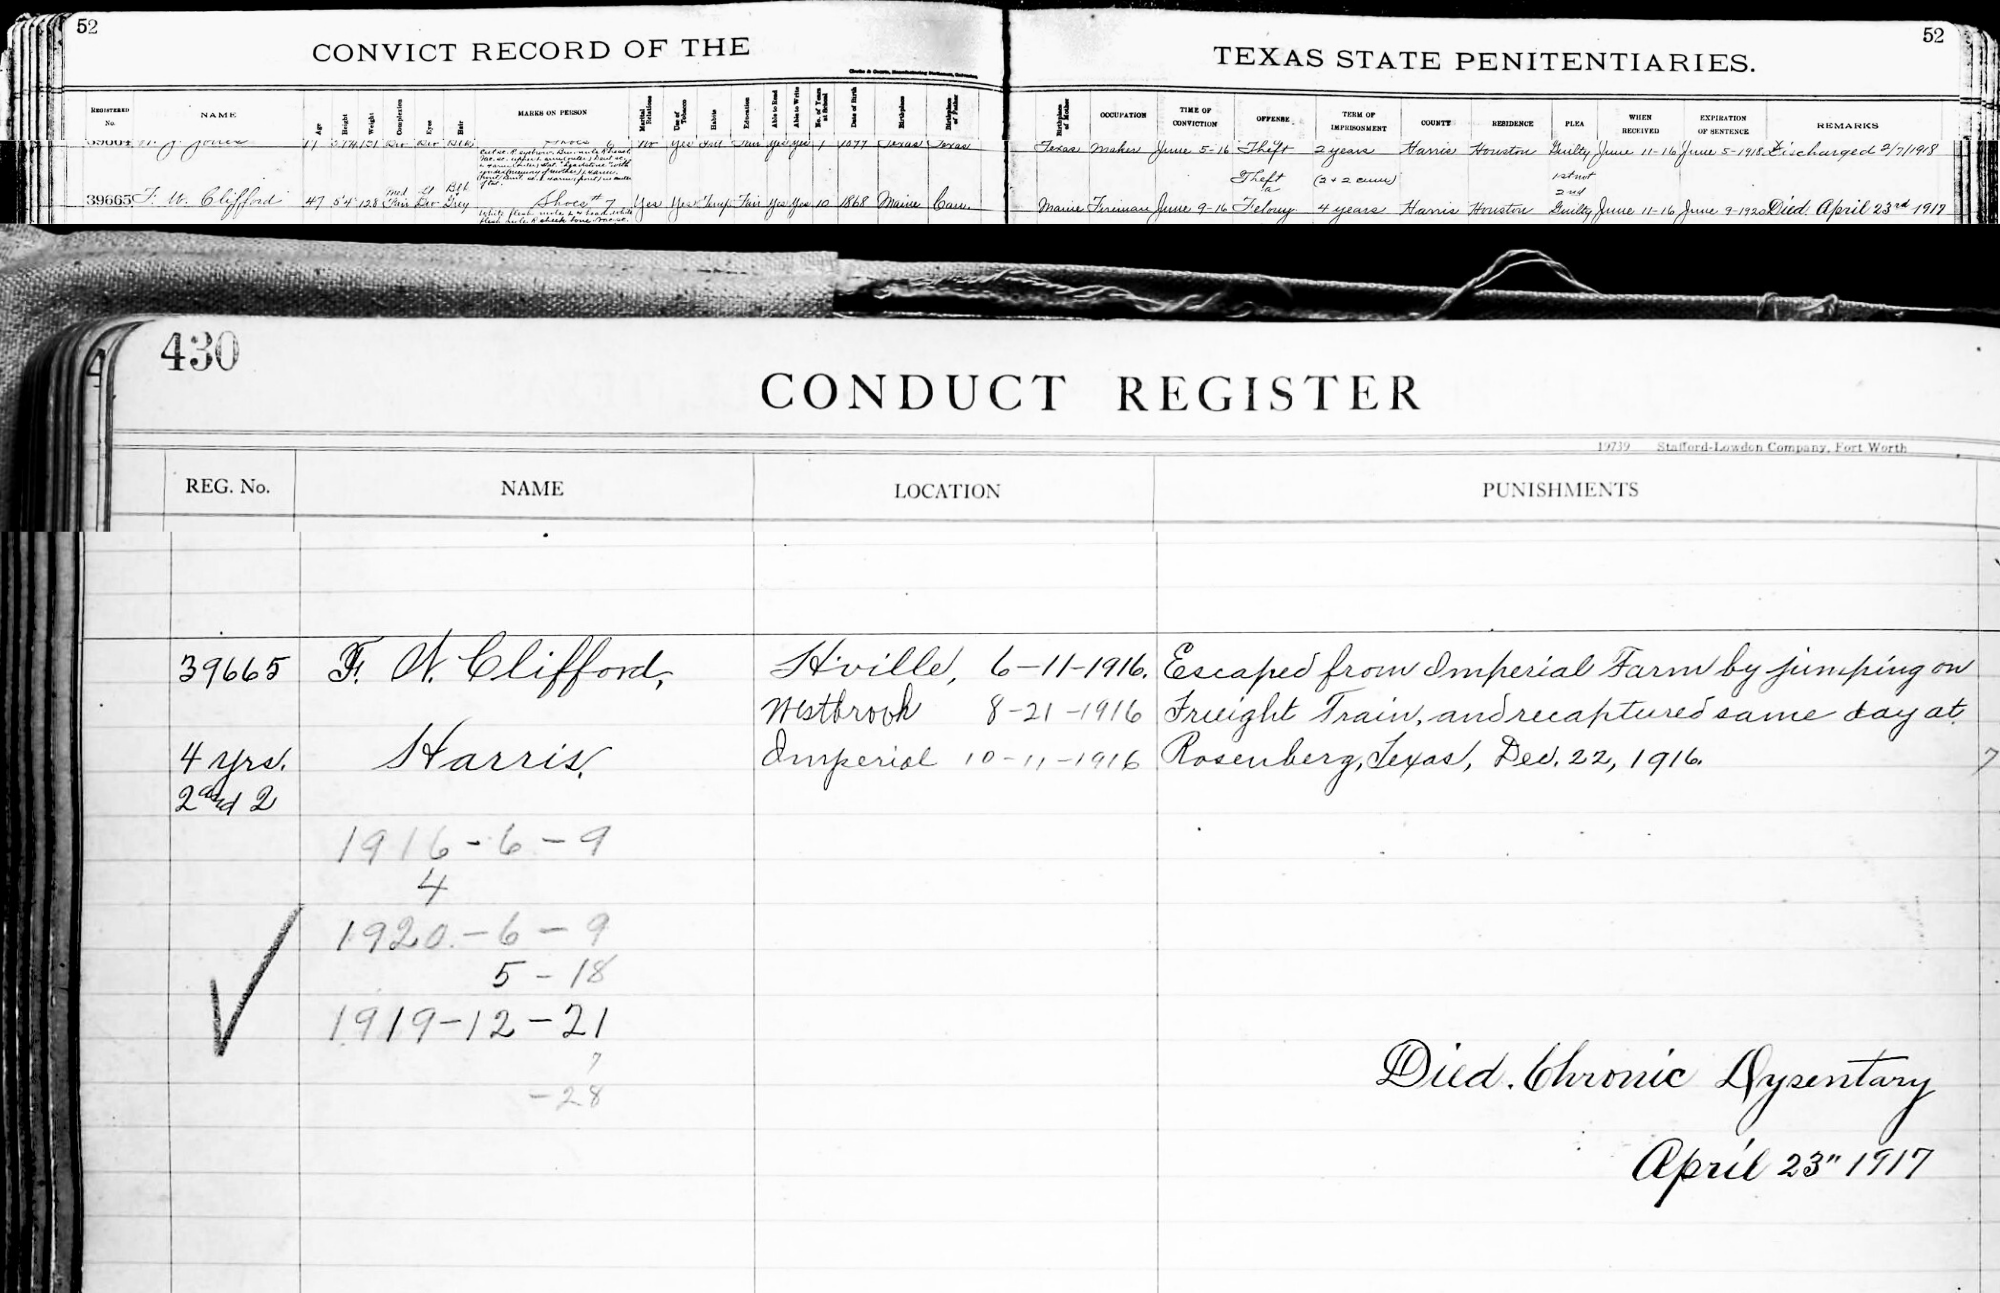 52
52
CONVICT RECORD OF THE
TEXAS STATE PENITENTIARIES.
REGISTERED No. NAME Age Height Weight Complexion Eyes Hair MARKS ON PERSON Marital Relations Use of Tobacco Habits Education Able to Read Able to Write No. of Years at School Date of Birth Birthplace Birthplace of Father Birthplace of Mother OCCUPATION TIME OF CONVICTION OFFENSE TERM OF IMPRISONMENT COUNTY RESIDENCE PLEA WHEN RECEIVED EXPIRATION OF SENTENCE REMARKS
Jones Yes Fair Yes Yes Texas Texas Texas Maker June 5-16 Theft 2 years Harris Houston Guilty June 11-16 June 5-1918 Discharged 2/7/1918
Theft (2 + 2 cumu) 1st not
a 2nd
39665 F. W. Clifford 47 5'4" 128 Med Fair Lt Bro Blk Grey Shoes # 7 Yes Yes Temp Fair Yes Yes 10 1868 Maine Can. Maine Fireman June 9-16 Felony 4 years Harris Houston Guilty June 11-16 June 9-1920 Died. April 23rd 1917
430
CONDUCT REGISTER
19739 Stafford-Lowdon Company, Fort Worth
REG. No. NAME LOCATION PUNISHMENTS
39665 F. W. Clifford, H'ville, 6-11-1916. Escaped from Imperial Farm by jumping on
Westbrook 8-21-1916 Freight Train, and recaptured same day at
4 yrs. Harris. Imperial 10-11-1916 Rosenberg, Texas, Dec. 22, 1916. 7
2 and 2
1916-6-9
4
1920.-6-9
5-18
1919-12-21
7
-28
Died. Chronic Dysentary
April 23" 1917